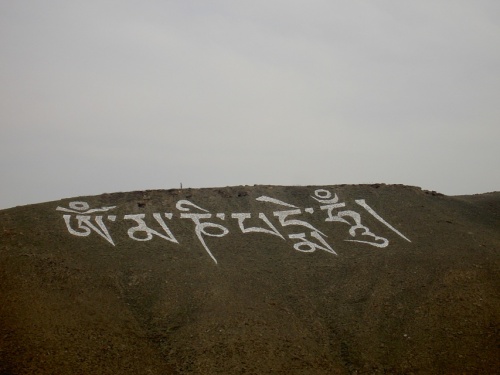 ཨོཾ་མ་ཎི་པདྨེ་ཧཱུྃ།